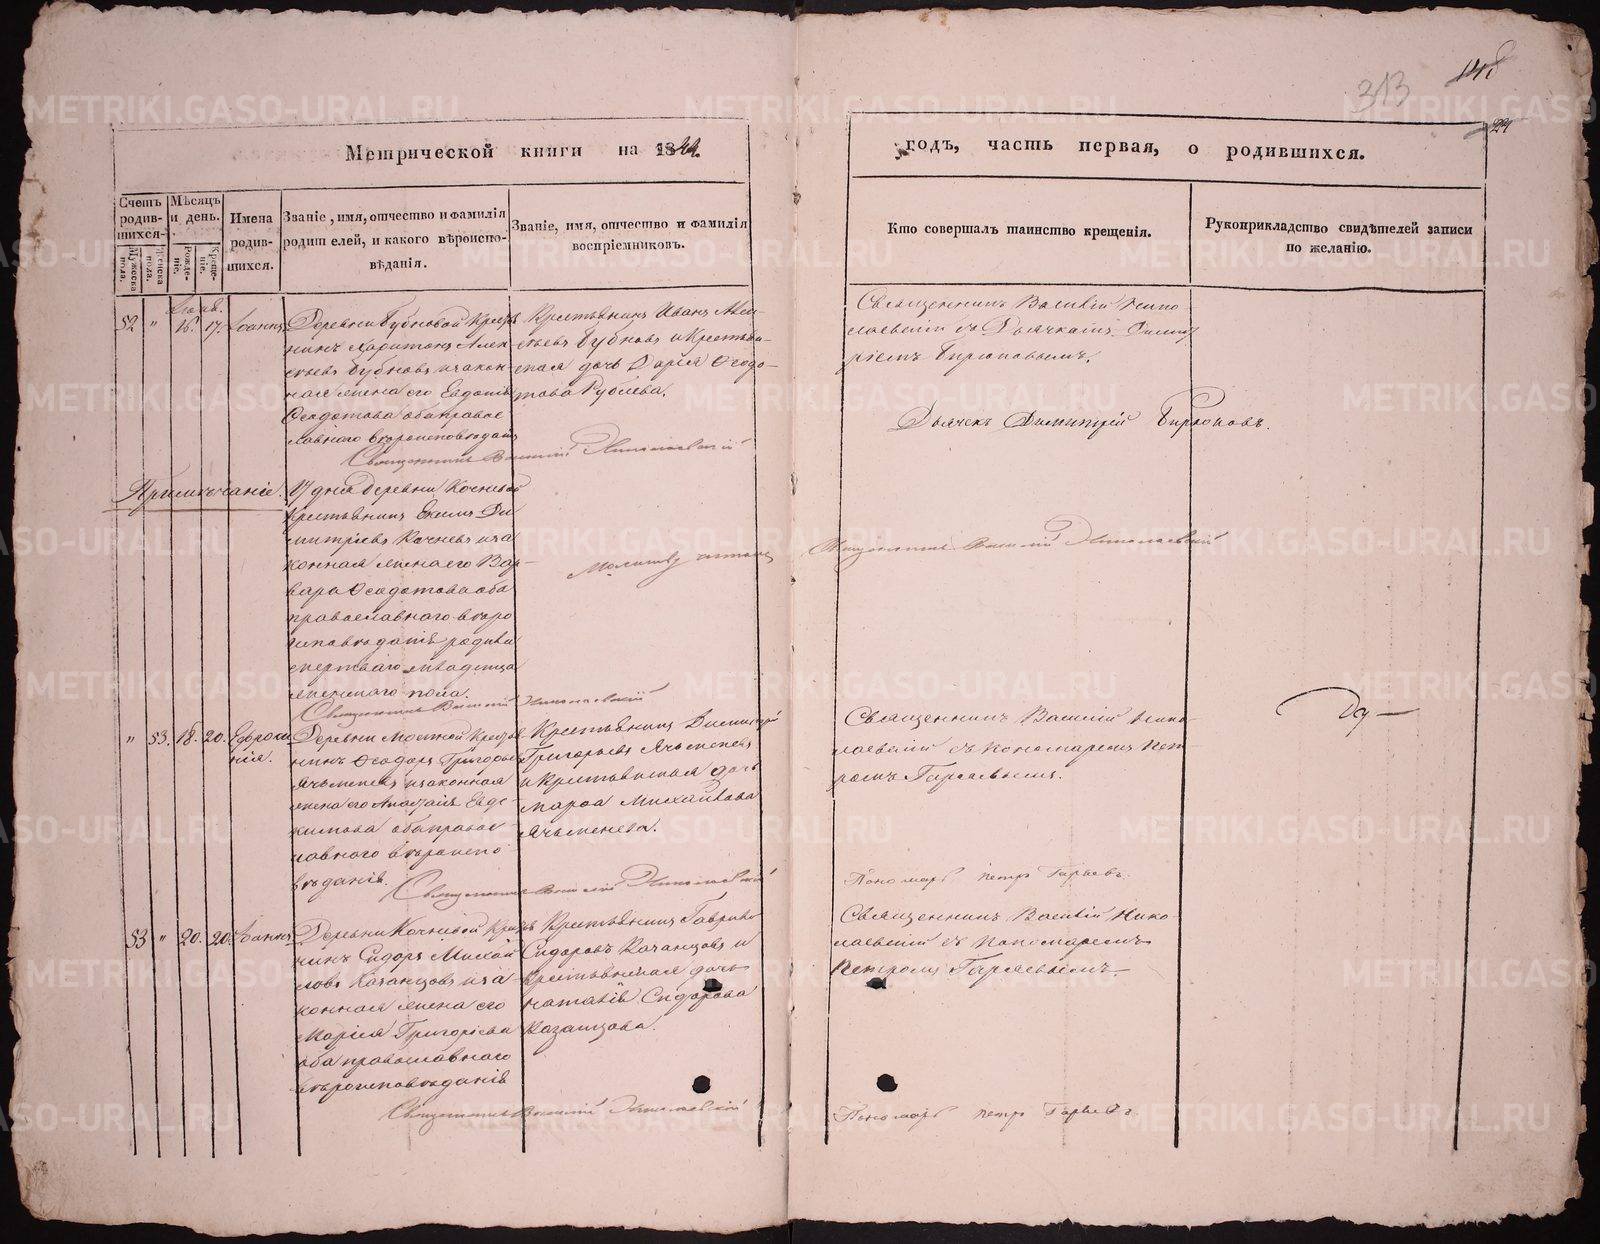 313
Метрической книги на 1844.
годъ, часть первая, о родившихся.
Счетъ родившихся.
Мужеска пола.
Женска пола.
Мѣсяцъ и день.
Рожденіе.
Крещеніе.
Имена родившихся.
Званіе, имя, отчество и фамилія
родителей, и какого вѣроиспо-
вѣданія.
Званіе, имя, отчество и фамилія
воспріемниковъ.
Кто совершалъ таинство крещенія.
Рукоприкладство свидѣтелей записи
по желанію.
52 " 16. 17. Іоаннъ
Деревни Бубновой Кресть
нинъ Харитонъ Алек
сѣевъ Бубновъ и закон
ная жена его Евдокія
Ѳеодотова оба правос
лавнаго вѣроисповѣданія
Священникъ Василій Николаевскій
Крестьянинъ Иванъ Алек
сѣевъ Бубновъ и Крестьян
ская дочь Дарія Ѳеодо-
това Рублева.
Священникъ Василій Нико
лаевскій съ Дьячкомъ Димит
ріемъ Бирюковымъ.
Дьячекъ Димитрій Бирюковъ.
Примѣчаніе.
17 дня деревни Кочневой
Крестьянинъ Екимъ Ди
митріевъ Кочневъ и за
конная жена его Вар-
вара Ѳеодотова оба
православнаго вѣро
исповѣданія родили
мертваго младенца
женскаго пола.
Священникъ Василій Николаевскій
Молитву читалъ Священникъ Василій Николаевскій
" 53. 18. 20. Ефроси
нія.
Деревни Мостовой Кресть
нинъ Ѳеодоръ Григорьев
Ячменевъ и законная
жена его Анастасія Евдо
кимова оба правос
лавнаго вѣроиспо
вѣданія.
Священникъ Василій Николаевскій
Крестьянинъ Димитрій
Григорьевъ Ячменевъ
и Крестьянская дочь
Марѳа Михайлова
Ячменева.
Священникъ Василій Нико-
лаевскій съ Пономаремъ Пет-
ромъ Гаряевымъ.
Пономарь Петръ Гаряевъ.
53 " 20. 20. Іоаннъ
Деревни Кочневой Кресть
нинъ Сидоръ Михай
ловъ Казанцовъ и за
конная жена его
Марія Григорьева
оба православнаго
вѣроисповѣданія
Священникъ Василій Николаевскій
Крестьянинъ Гаврило
Сидоровъ Казанцовъ и
Крестьянская дочь
Наталія Сидорова
Казанцова.
Священникъ Василій Нико-
лаевскій съ Пономаремъ
Петромъ Гаряевымъ.
Пономарь Петръ Гаряевъ.
METRIKI.GASO-URAL.RU